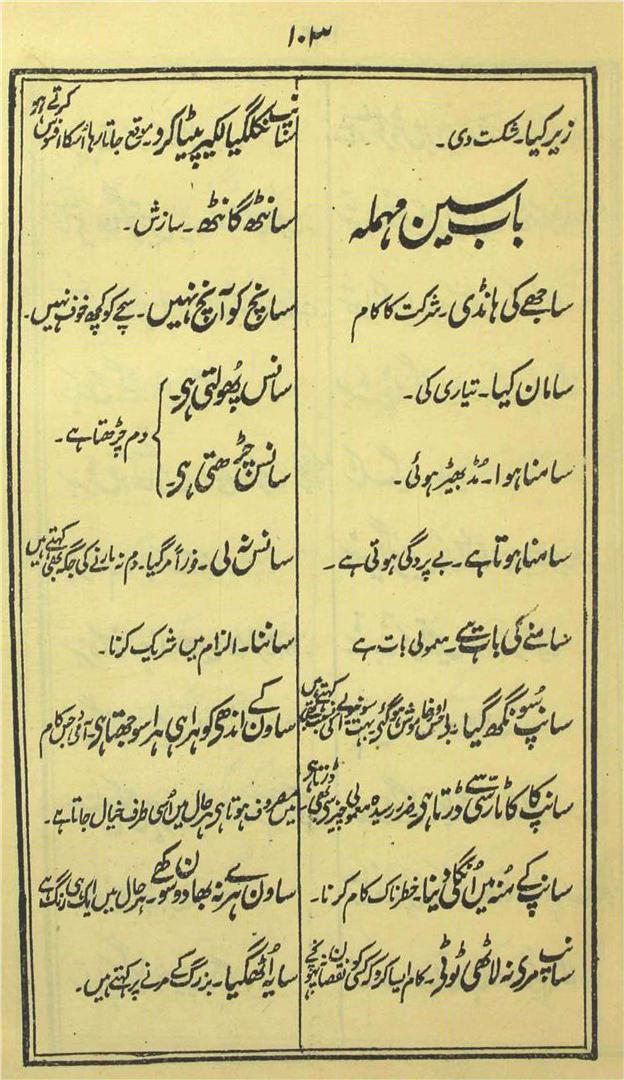 ۱۰۳
زیر کیا۔ شکست دی۔
باب سین مہملہ
ساجھے کی ہانڈی۔ شرکت کا کام
سامان کیا۔ تیاری کی۔
سامنا ہوا۔ مُڈ بھیڑ ہوئی۔
سامنا ہوتا ہے۔ بے پردگی ہوتی ہے۔
سامنے کی بات ہے۔ معمولی بات ہے
سانپ سُونگھ گیا۔ خاموش ہو گئے بہت سونے کی نسبت بھی کہتے ہیں
سانپ کا کاٹا رسّی سے ڈرتا ہی۔ ضرر رسیدہ معمولی چیز سے بھی ڈرتا ہی
سانپ کے مُنہ میں اُنگلی دینا۔ خطرناک کام کرنا۔
سانپ مری نہ لاٹھی ٹوٹی۔ کام ایسا کرو کہ کسی کو نقصان نہ پہونچے
سانپ نکل گیا لکیر پیٹا کرو۔ موقع جاتا رہا اُسکا افسوس کرتے ہو
سانٹھ گانٹھ۔ سازش۔
سانچ کو آنچ نہیں۔ سچے کو کچھ خوف نہیں۔
سانس پُھولتی ہی۔
سانس چڑھتی ہی۔
دم چڑھتا ہے۔
سانس نہ لی۔ فوراً مر گیا۔ دم نہ مارنے کی جگہ بھی کہتے ہیں
ساننا۔ الزام میں شریک کرنا۔
ساون کے اندھے کو ہرا ہی ہرا سوجھتا ہی۔ آدمی جس کام
میں مصروف ہوتا ہی ہر حال میں اُسی طرف خیال جاتا ہے۔
ساون ہرے نہ بھادوں سوکھے۔ ہر حال میں ایک ہی رنگ ہے
سایہ اُٹھ گیا۔ بزرگ کے مرنے پر کہتے ہیں۔